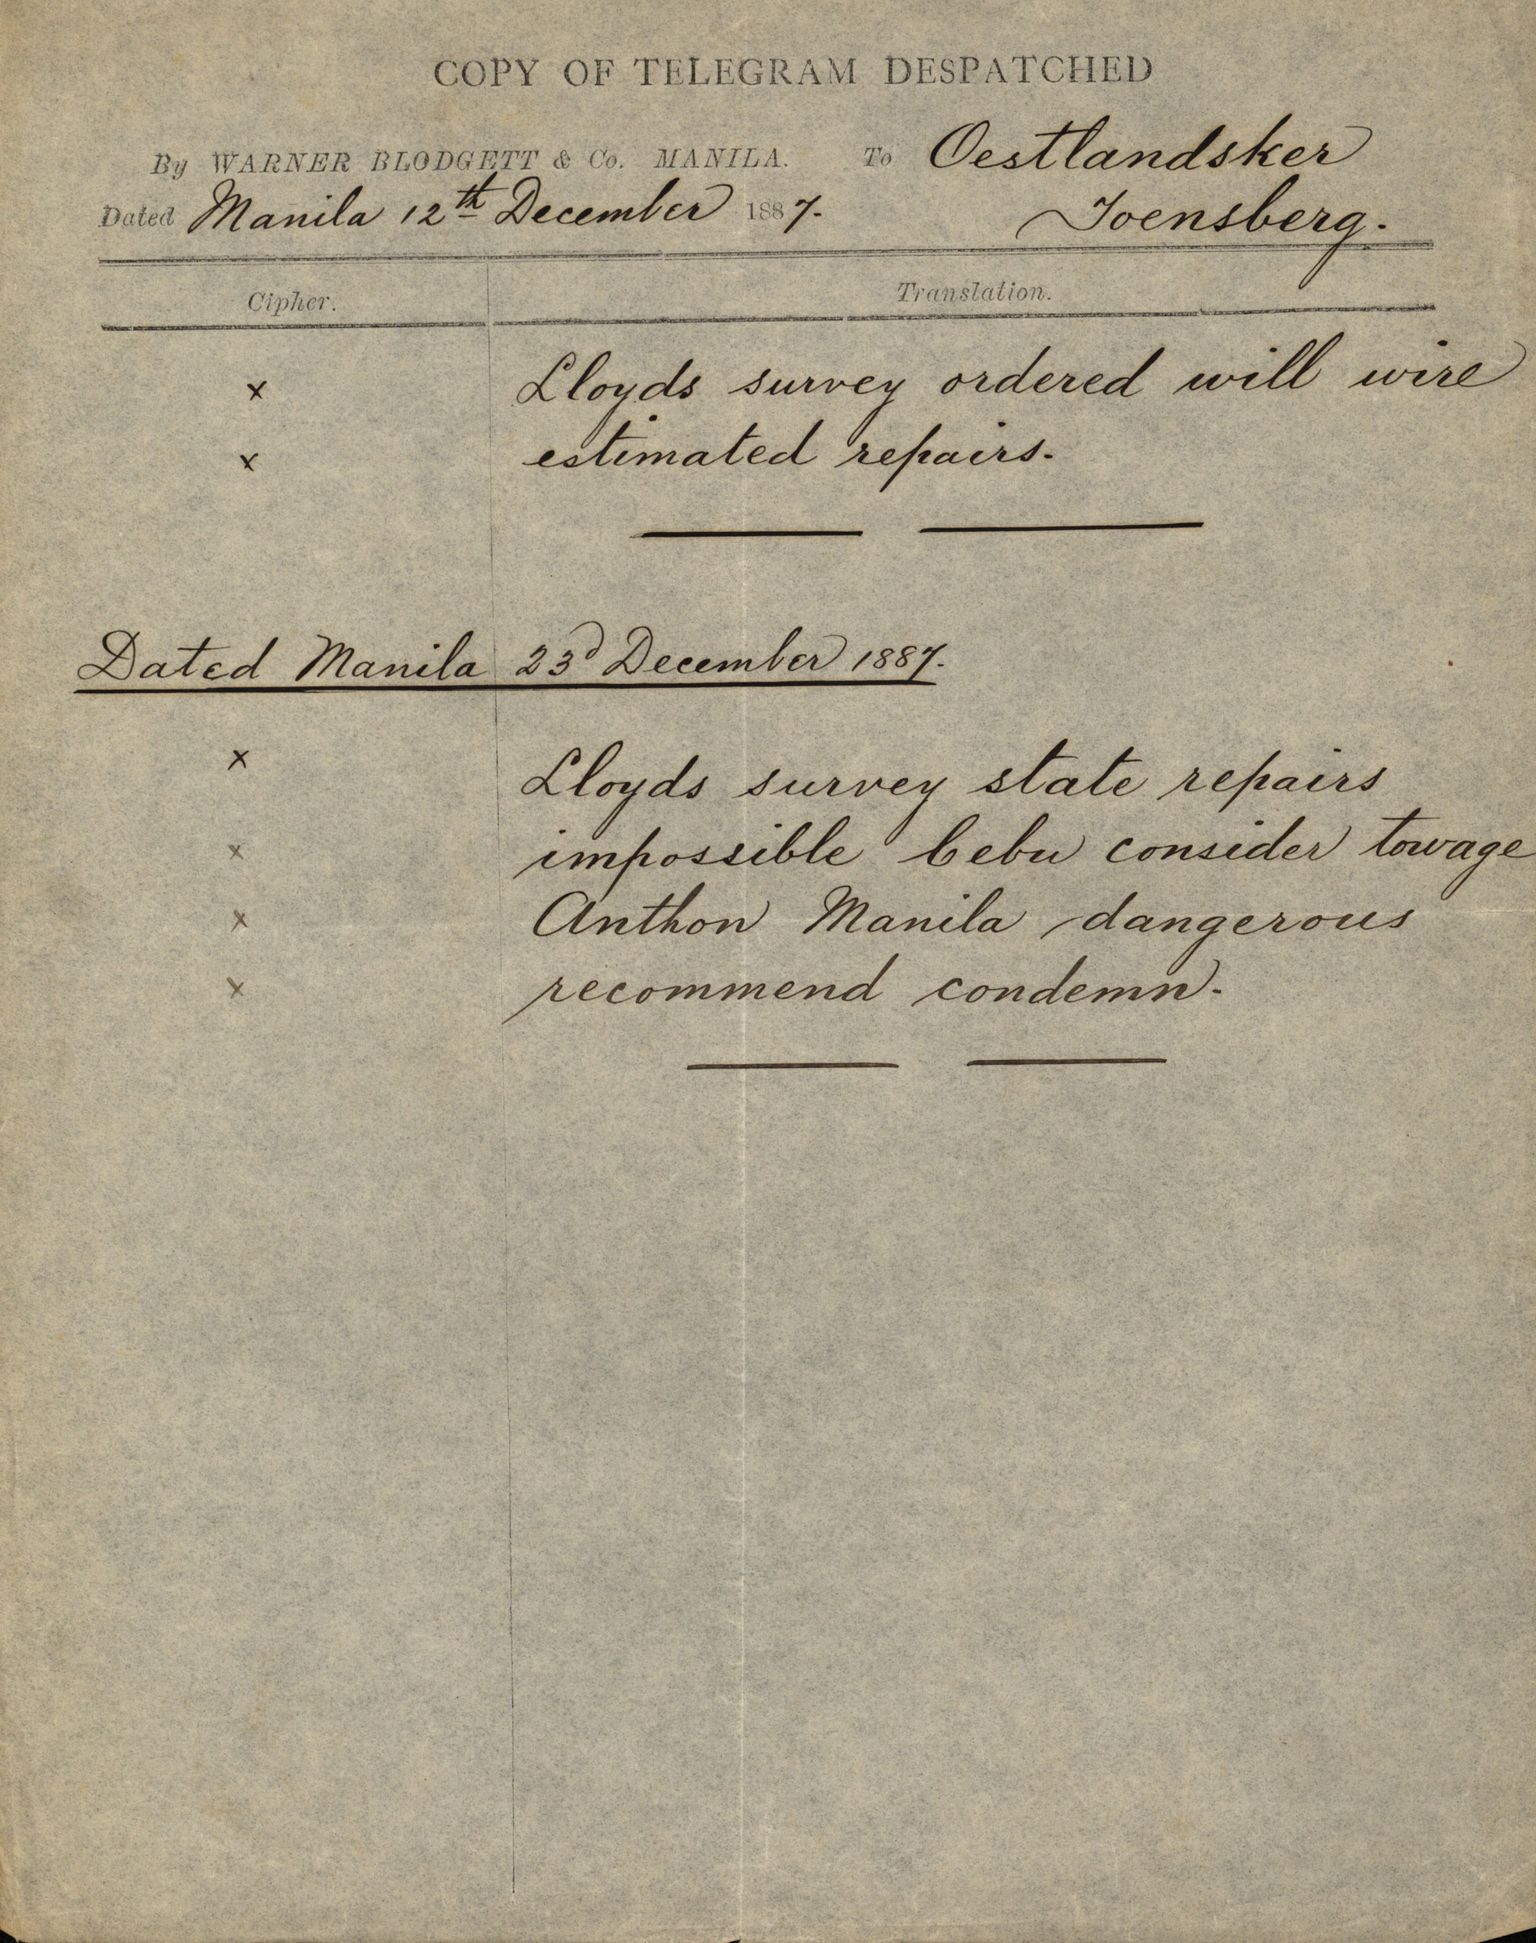 COPY OF TELEGRAM DESPATCHED
By WARNER BLODGETT & Co. MANILA. To Oestlandsker
Dated Manila 12th December 1887. Toensberg.
Cipher. Translation.
x Lloyds survey ordered will wire
x estimated repairs.
Dated Manila 23d December 1887.
x Lloyds survey state repairs
x impossible Cebu consider towage
x Anthon Manila dangerous
x recommend condemn.